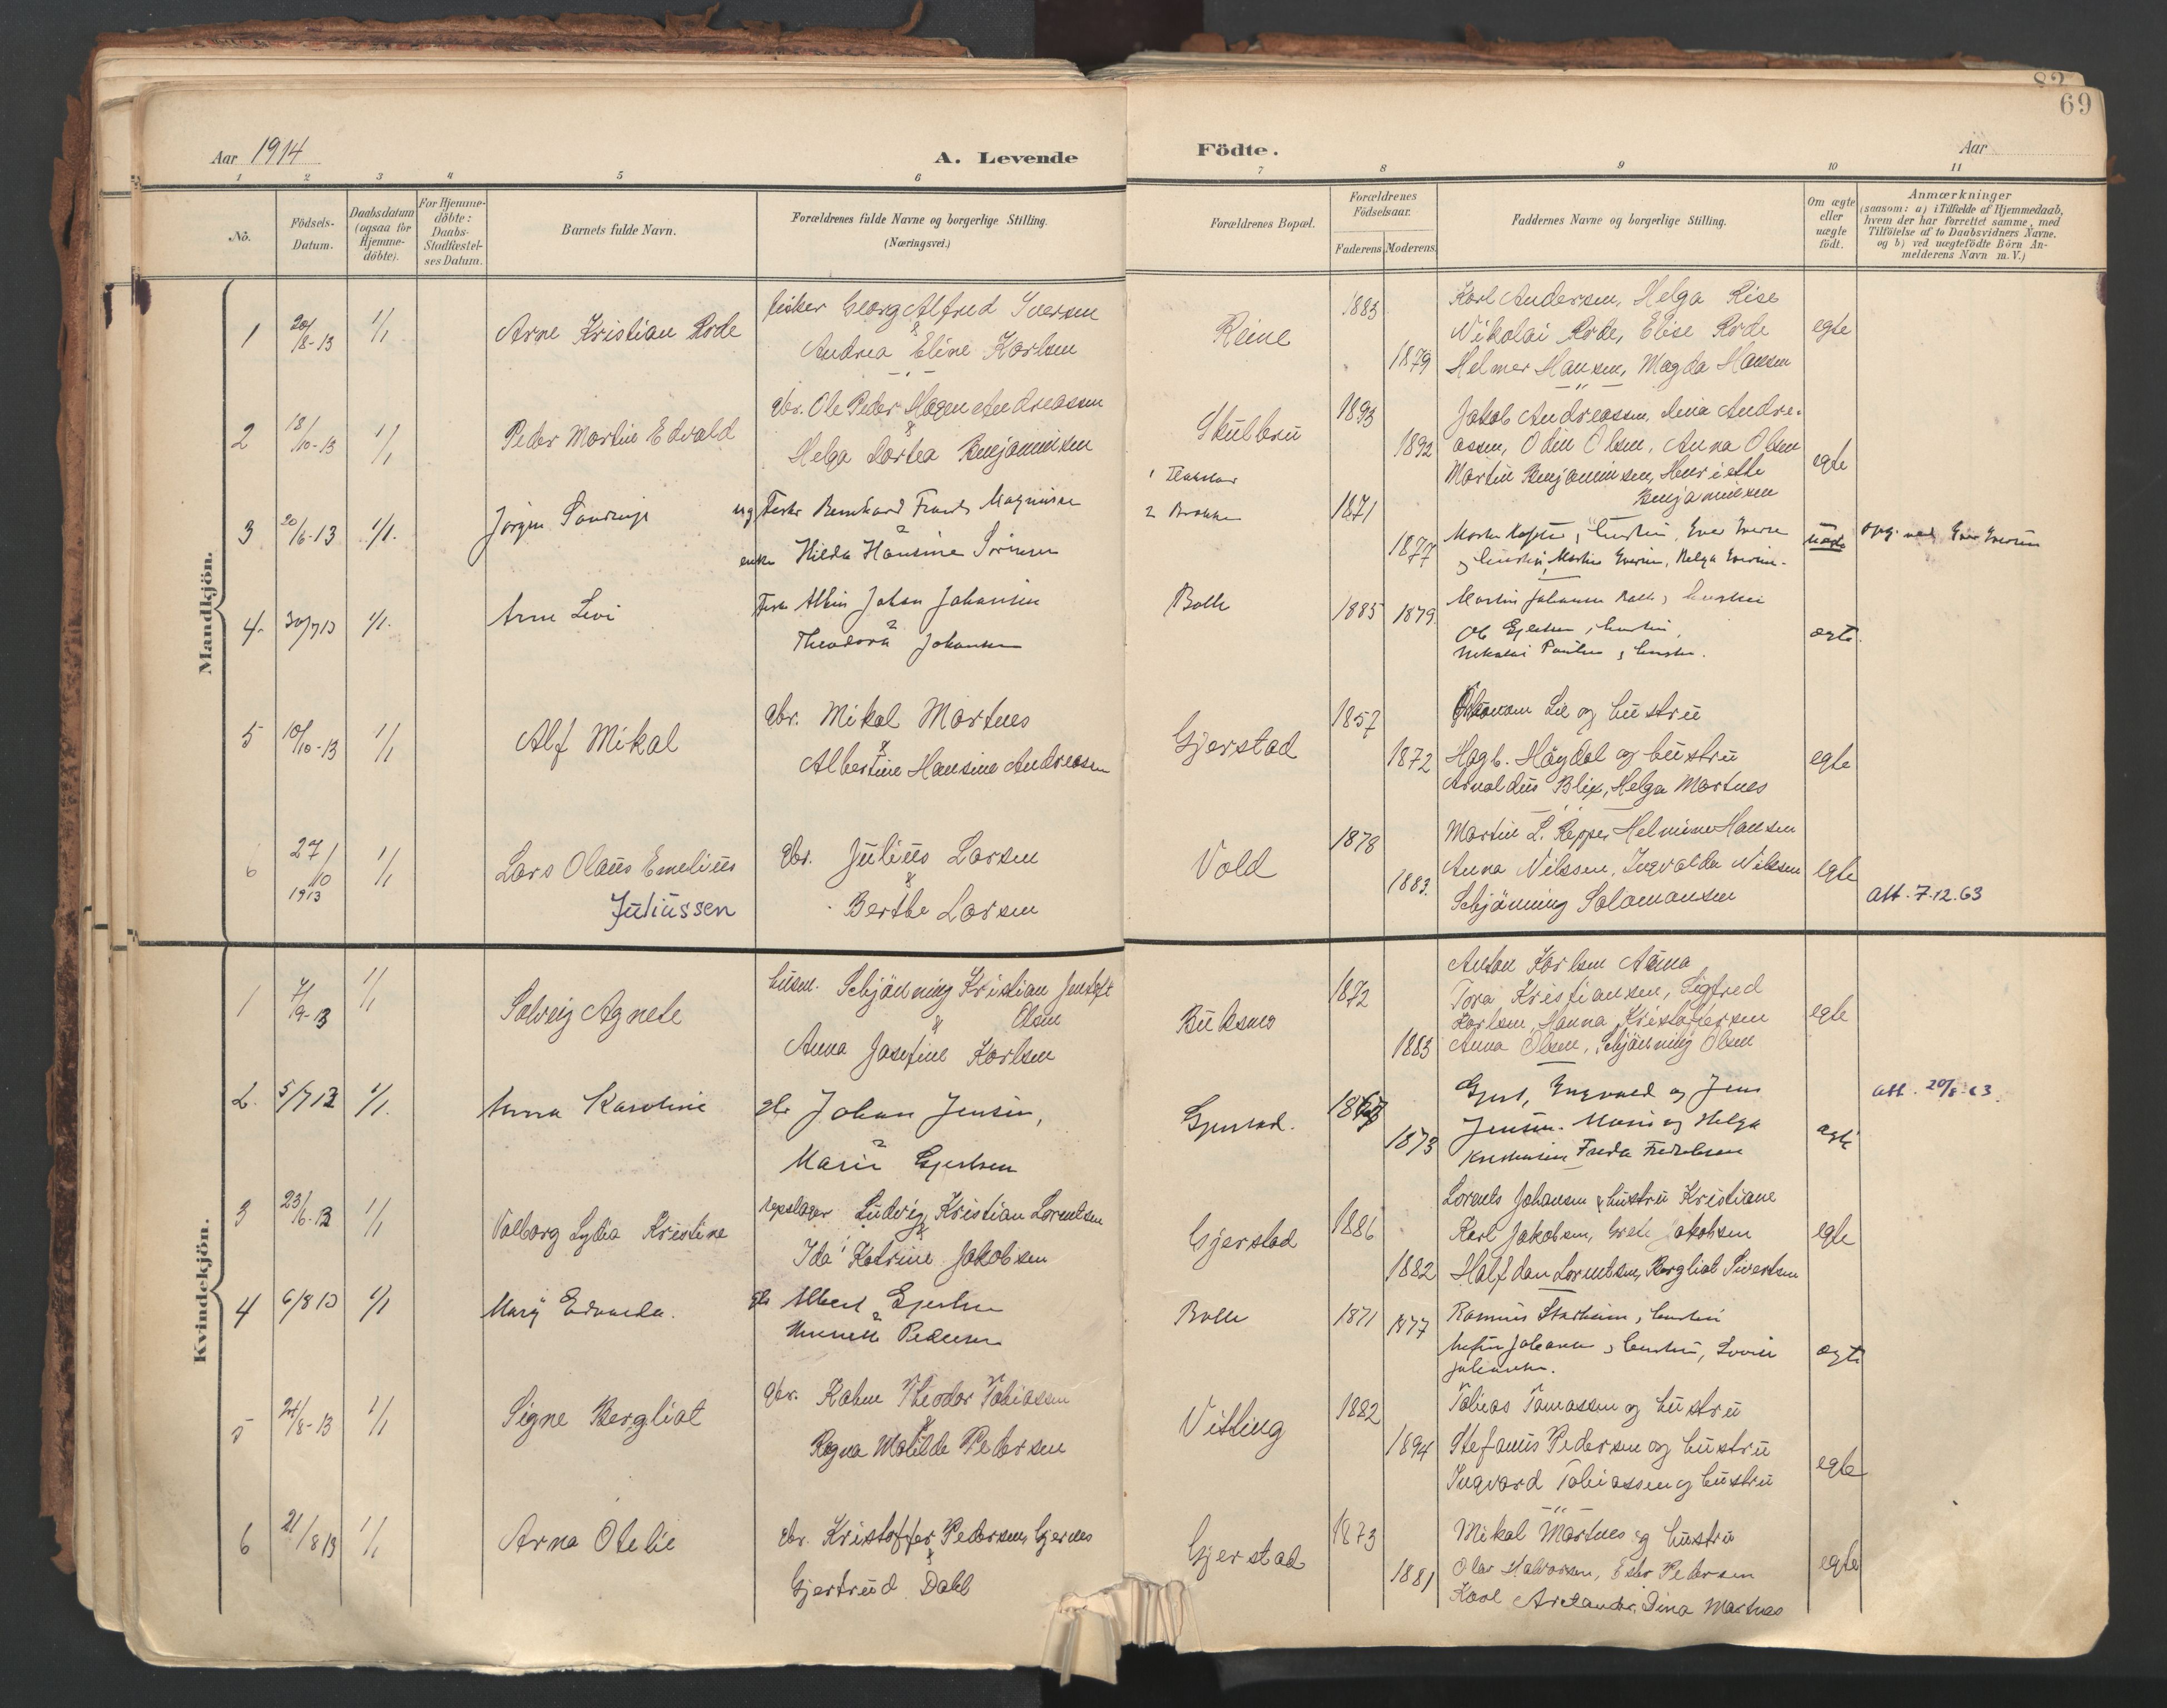 82
69
Aar 1914
A. Levende
Födte.
Aar
1 2 3 4 5 6 7 8 9 10 11
No.
Födsels-
Datum.
Daabsdatum
(ogsaa for
Hjemme-
döbte).
For Hjemme-
döbte:
Daabs-
Stadfæstel-
ses Datum.
Barnets fulde Navn.
Forældrenes fulde Navne og borgerlige Stilling.
(Næringsvei.)
Forældrenes Bopæl.
Forældrenes
Födselsaar.
Faderens Moderens
Faddernes Navne og borgerlige Stilling.
Om ægte
eller
uægte
födt.
Anmærkninger
(saasom: a) i Tilfælde af Hjemmedaab,
hvem der har forrettet samme, med
Tilföielse af to Daabsvidners Navne.
og b) ved uægtefödte Börn An-
melderens Navn m. V.)
Mandkjön.
1 20/8-13 1/1 Arne Kristian Rode
fisker Georg Alfred Iversen
&
Andrea Eline Karlsen
Reine 1883 1879
Karl Andersen, Helga Rise
Nikolai Rode, Elise Rode
Helmer Hansen, Magda Hansen
egte
2 18/10-13 1/1 Peder Martin Edvald
gbr. Ole Peder Hagen Andreassen
&
Helga Dortea Benjaminsen
Skulbru 1893 1892
Jakob Andreassen, Andre-
assen, Odin Olsen, Anna Olsen
Martin Benjaminsen, Henriette
Benjaminsen
egte
3 20/6-13 1/1. Jörgen
Bernhard Magnus
enke Hilda Hansine Sörensen
1
2
1871 1877
Martin Helga
4. 30/7 13 1/1. Arne Levi
Albin Johan Johansen
Theodora Johansen
Bolle 1885 1879
Martin Johansen
Nikolai
ægte.
5 10/10-13 1/1 Alf Mikal
gbr. Mikal Martnes
&
Albertine Hansine Andreasen
Gjerstad 1857 1872
Lie og hustru
Hagb. Høgdal og hustru
Arnoldus Blix, Helga Martnes
egte
6 27/10 1913 1/1 Lars Olaus Emelius
Juliussen
gbr. Julius Larsen
&
Berthe Larsen
Vold 1878 1883.
Martin L. Repper Helmine Hansen
Anna Nilssen, Ingvalda Nilssen
Schjönning Salamonsen
egte
att. 7.12.63
Kvindekjön.
1 7/9-13 1/1 Solveig Agnete
husm. Schjönning Kristian Jentoft
& Olsen
Anna Josefine Karlsen
Buksnes 1872 1883
Anton Karlsen
Tora Kristiansen, Sigfred
Karlsen, Hanna Kristoffersen
Anna Olsen, Schjönning Olsen
egte
2. 5/7 13 1/1. Anna Karoline
gbr Johan Jensen,
Marie Gjertsen
Gjerstad. 1873
Gjert, Ingvald og Jens
Jensen. Marie og Helga
Frida Fredriksen
ægte
att. 20/8-63.
3 23/6-13 1/1 Valborg Lydia Kristine
repslager Ludvig Kristian Lorentsen
&
Ida Katrine Jakobsen
Gjerstad 1886 1882
Lorents Johansen & hustru Kristiane
Karl Jakobsen, Grete Jakobsen
Halfdan Lorentsen, Bergliot Sivertsen
egte
4 6/8 13 1/1 Mary Edvarda.
gbr Albert Gjertsen
Pedersen
Bolle 1871 1877
Rasmus
Johansen
ægte
5 24/8-13 1/1 Signe Bergliot
gbr. Theodor Tobiassen
&
Ragna Matilde Pedersen
Vitting 1882 1894
Tobias Tomassen og hustru
Stefanus Pedersen og hustru
Ingvard Tobiassen og hustru
egte
6 21/8 13 1/1 Arna Otelie
gbr. Kristoffer Pedersen Gjernes
&
Gjertrud Dahl
Gjerstad 1873 1881
Mikal Martnes og hustru
Olav Halvorsen, Ester Pedersen
Karl Dina Martnes
egte